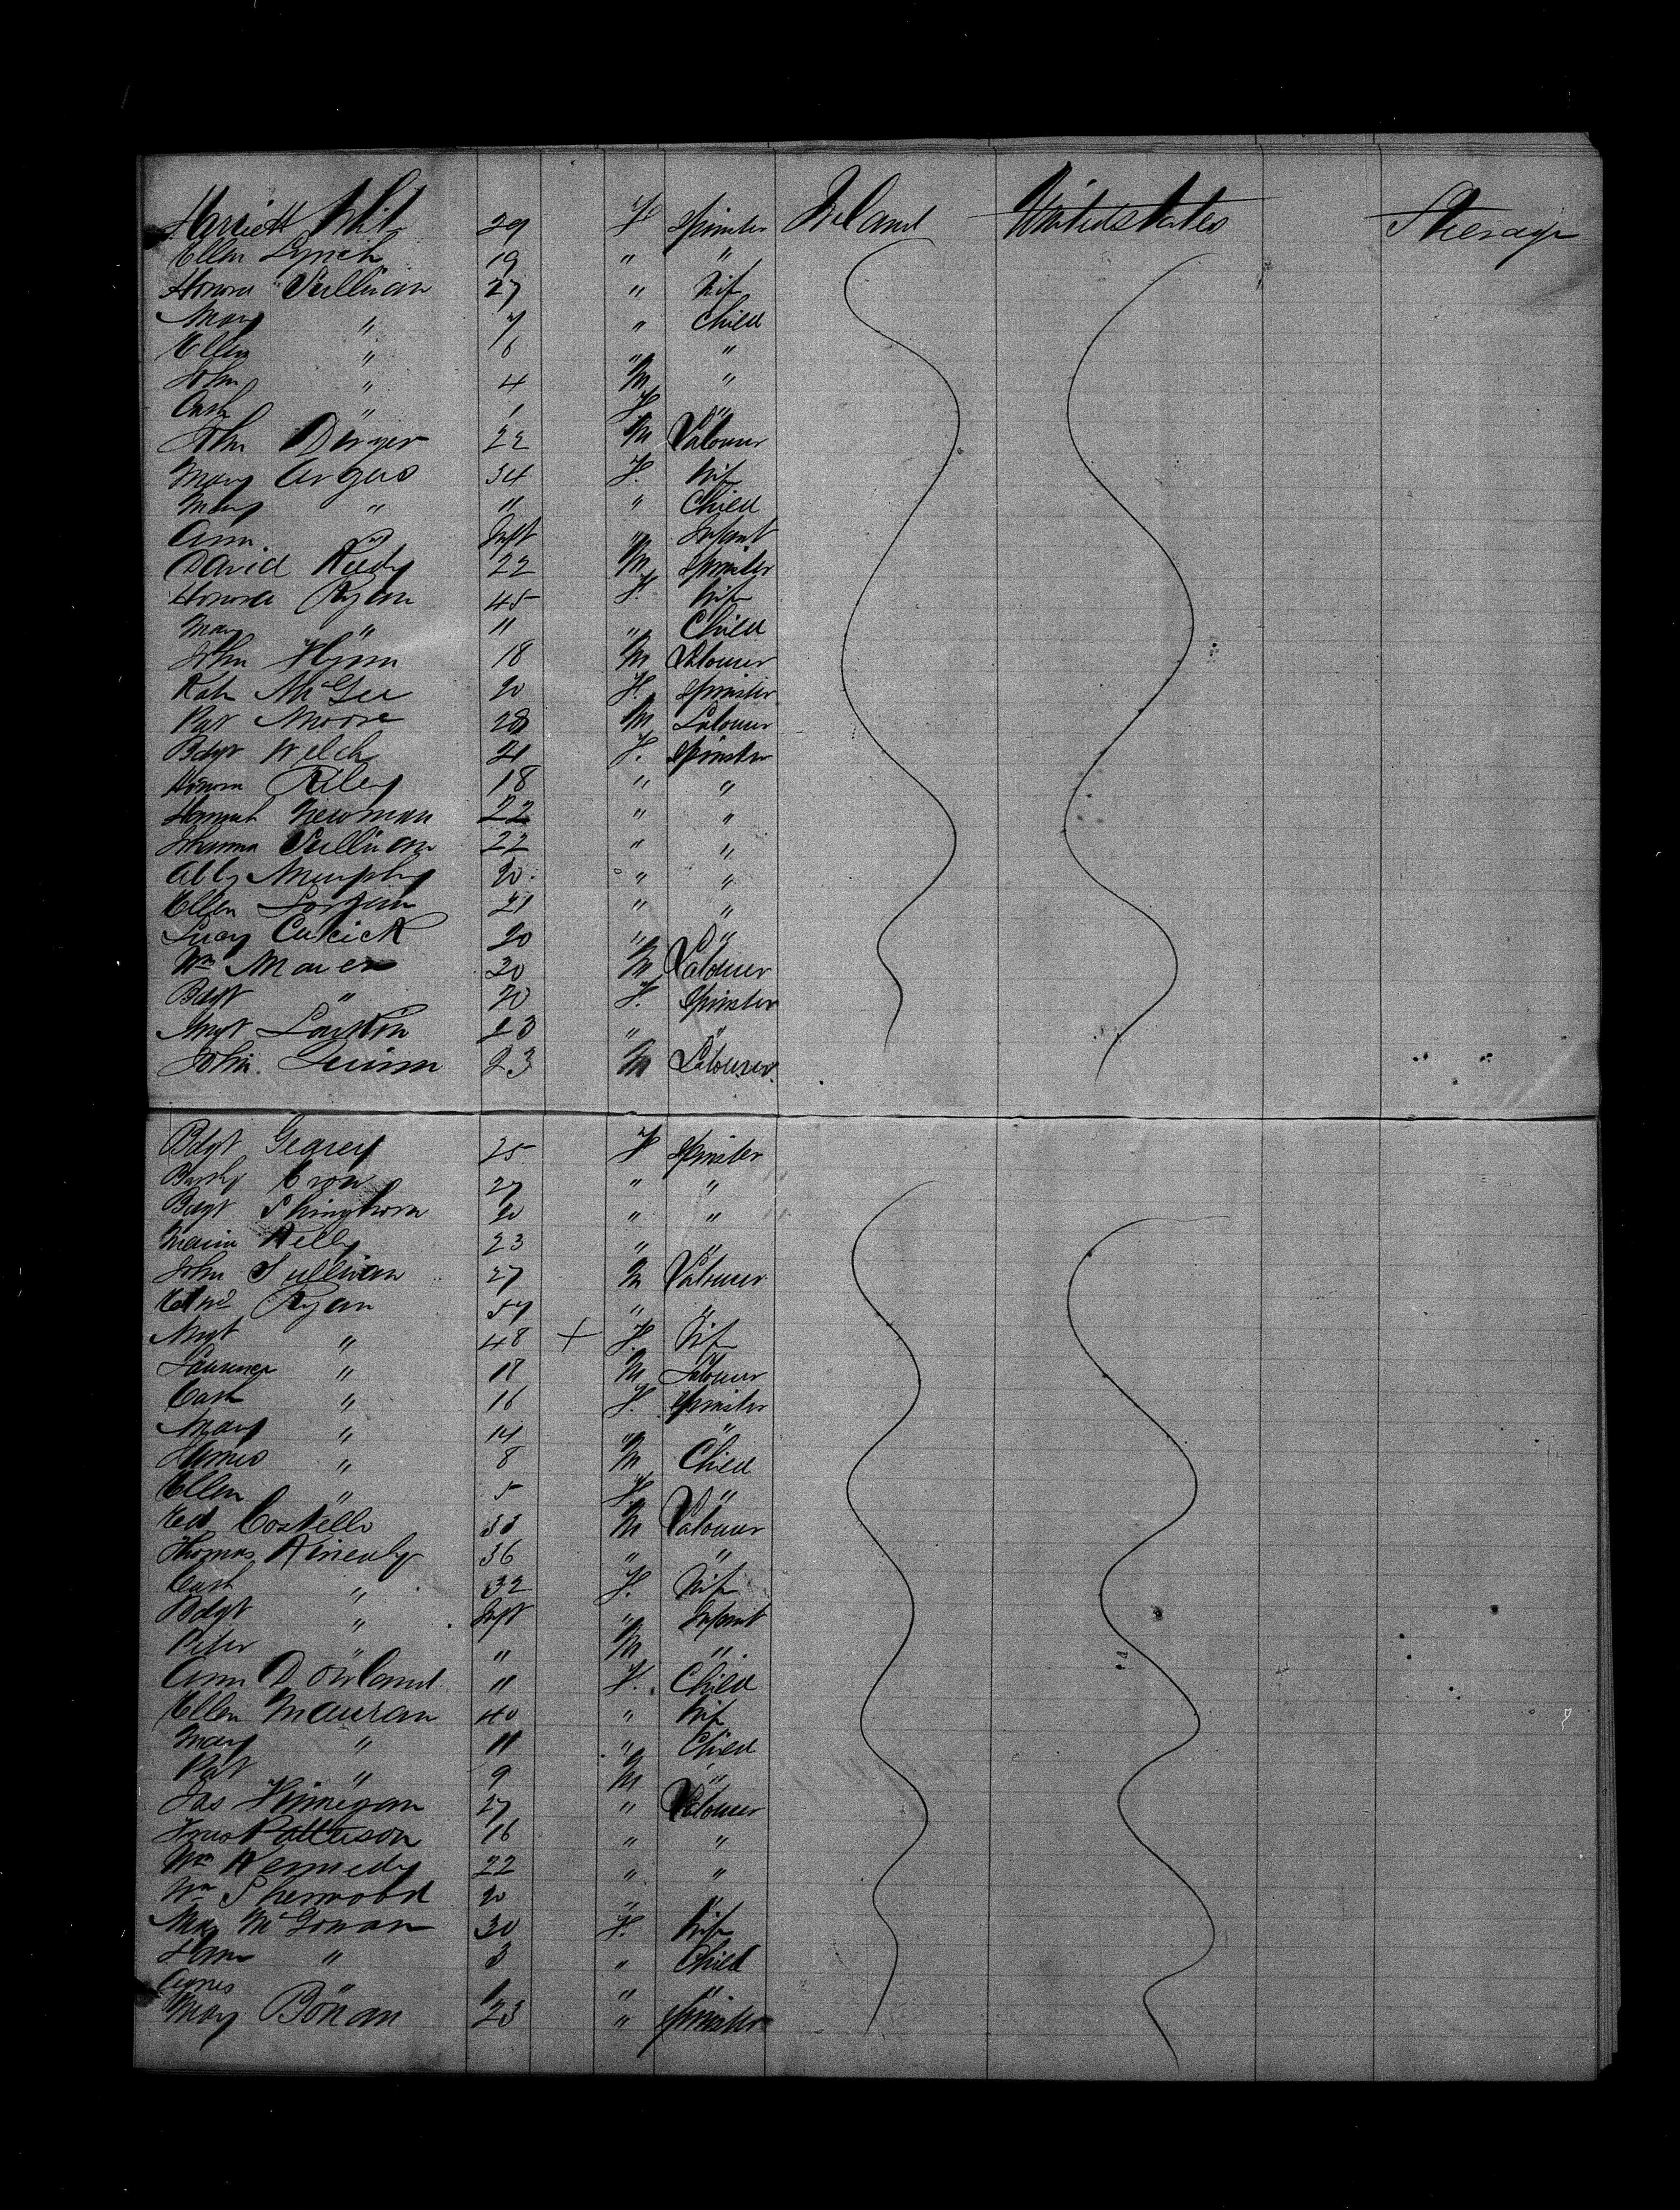 Harriett Whit 29 F Spinster Ireland United States Steerage
Ellen Lynch 19 " "
Honora Sullivan 27 " Wife
Mary " 7 " Child
Ellen " 6 " "
John " 4 M "
Cath " 1 F "
John Dwyer 22 M Labourer
Mary Argus 34 F. Wife
Mary " 11 " Child
Ann " Inft " Infant
David Rudy 22 M Spinster
Honora Ryan 45 F. Wife
Mary " 11 " Child
John Flynn 18 M Labourer
Kate McGee 20 F. Spinster
Pat Moore 28 M Labourer
Bdgt Welch 21 F. Spinster
Honora Riley 18 " "
Hannah Newman 22 " "
Johanna Sullivan 22 " "
Abby Murphy 20 " "
Ellen 21 " "
Lucy Cusick 20 " "
Wm Maver 30 M Labourer
Bdgt " 20 F. Spinster
Mngt Larkin 23 " "
John Quinn 23 M Labourer
Bdgt Gearey 25 F Spinster
Cron 27 " "
Bdgt Springhorn 20 " "
Maria Kelly 23 " "
John Sullivan 27 M Labourer
Edwd Ryan 57 " "
Mngt " 48 + F. Wife
Laurence " 17 M Labourer
Cath " 16 F. Spinster
Mary " 14 " "
James " 8 M Child
Ellen " 5 F "
Ed Costello 33 M Labourer
Thomas Kinealy 36 " "
Cath " 32 F. Wife
Bdgt " Inft " Infant
Peter " " M "
Ann Dowland 11 F. Child
Ellen Mauran 40 " Wife
Mary " 11 " Child
Pat " 9 M "
Jas Finnegan 27 " Labourer
Patterson 16 " "
Wm Kennedy 22 " "
Wm Sherwood 20 " "
Mary McGowan 30 F. Wife
" 3 " Child
Agnes 1 " "
Mary Bonan 23 " Spinster